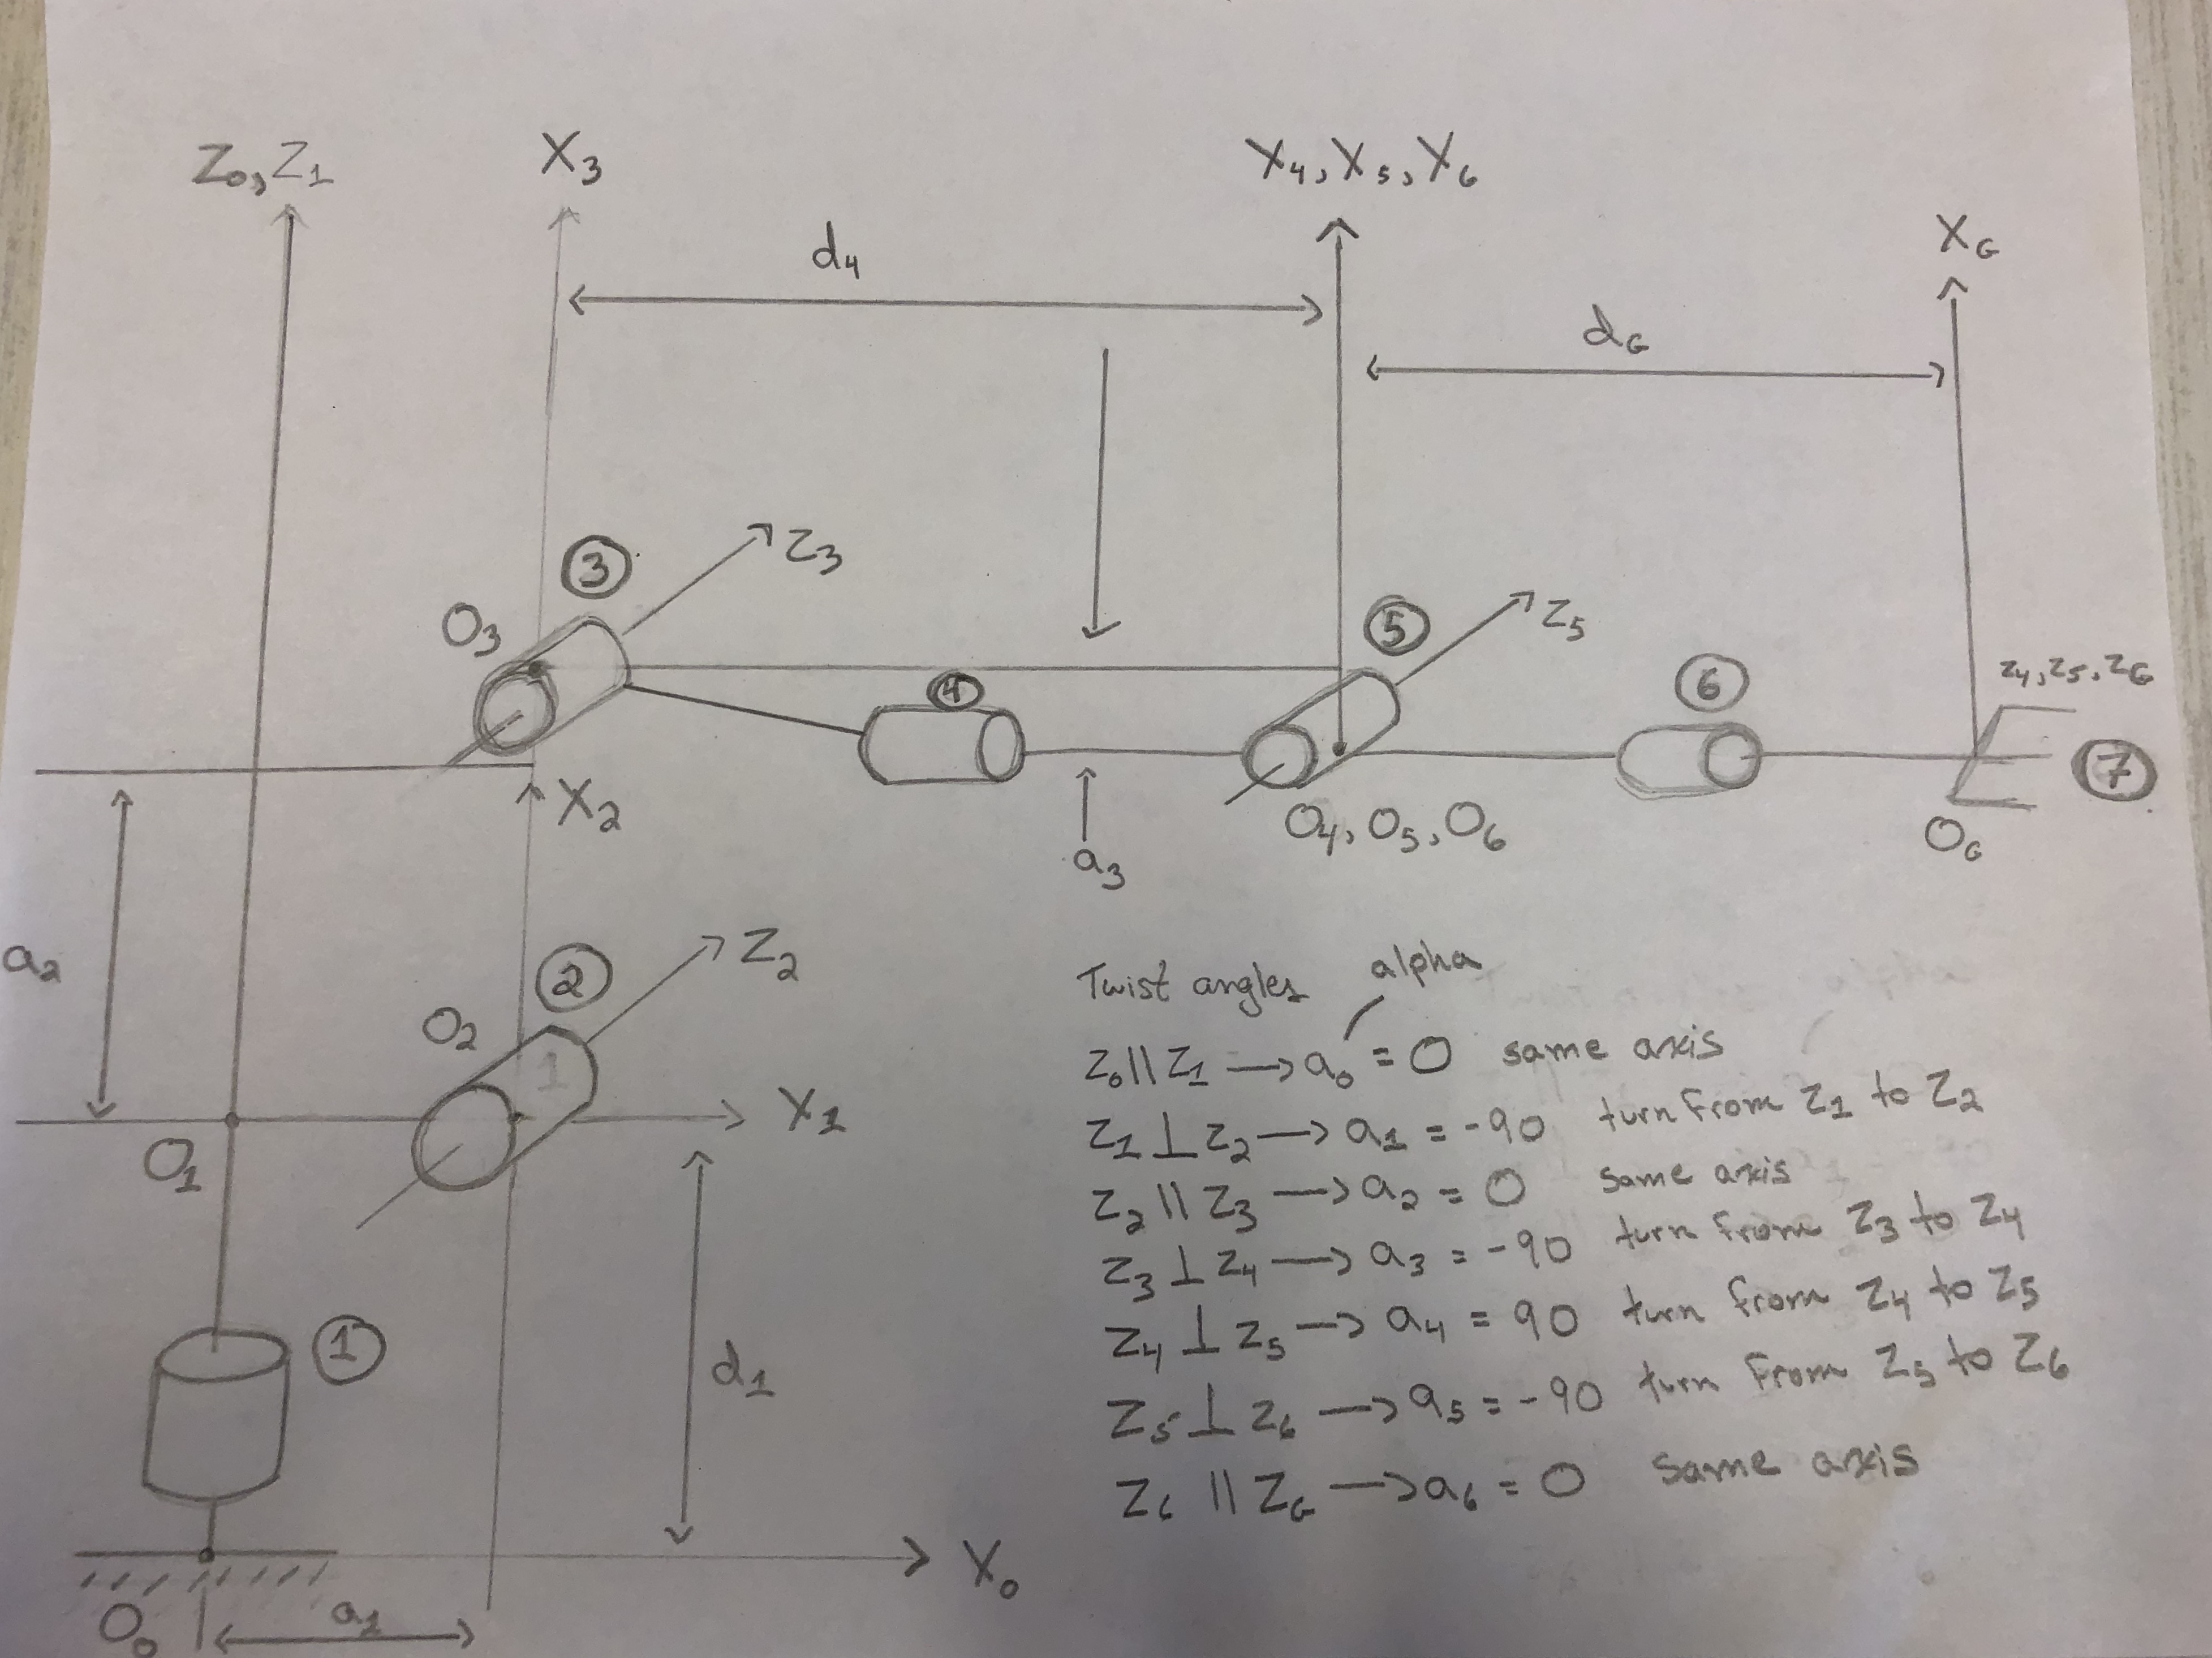 Z₀,Z₁
X₃
X₄, X₅, X₆
X_G
d₄
d_G
Z₃
③
O₃
Z₅
⑤
④
⑥
Z₄,Z₅,Z_G
⑦
X₂
O₄, O₅, O₆
O_G
a₃
a₂
Z₂
②
O₂
1
X₁
O₁
①
d₁
X₀
O₀
a₁
Twist angles alpha
Z₀||Z₁ → a₀ = 0 same axis
Z₁⊥Z₂ → a₁ = -90 turn from Z₁ to Z₂
Z₂||Z₃ → a₂ = 0 same axis
Z₃⊥Z₄ → a₃ = -90 turn from Z₃ to Z₄
Z₄⊥Z₅ → a₄ = 90 turn from Z₄ to Z₅
Z₅⊥Z₆ → a₅ = -90 turn from Z₅ to Z₆
Z₆||Z_G → a₆ = 0 same axis